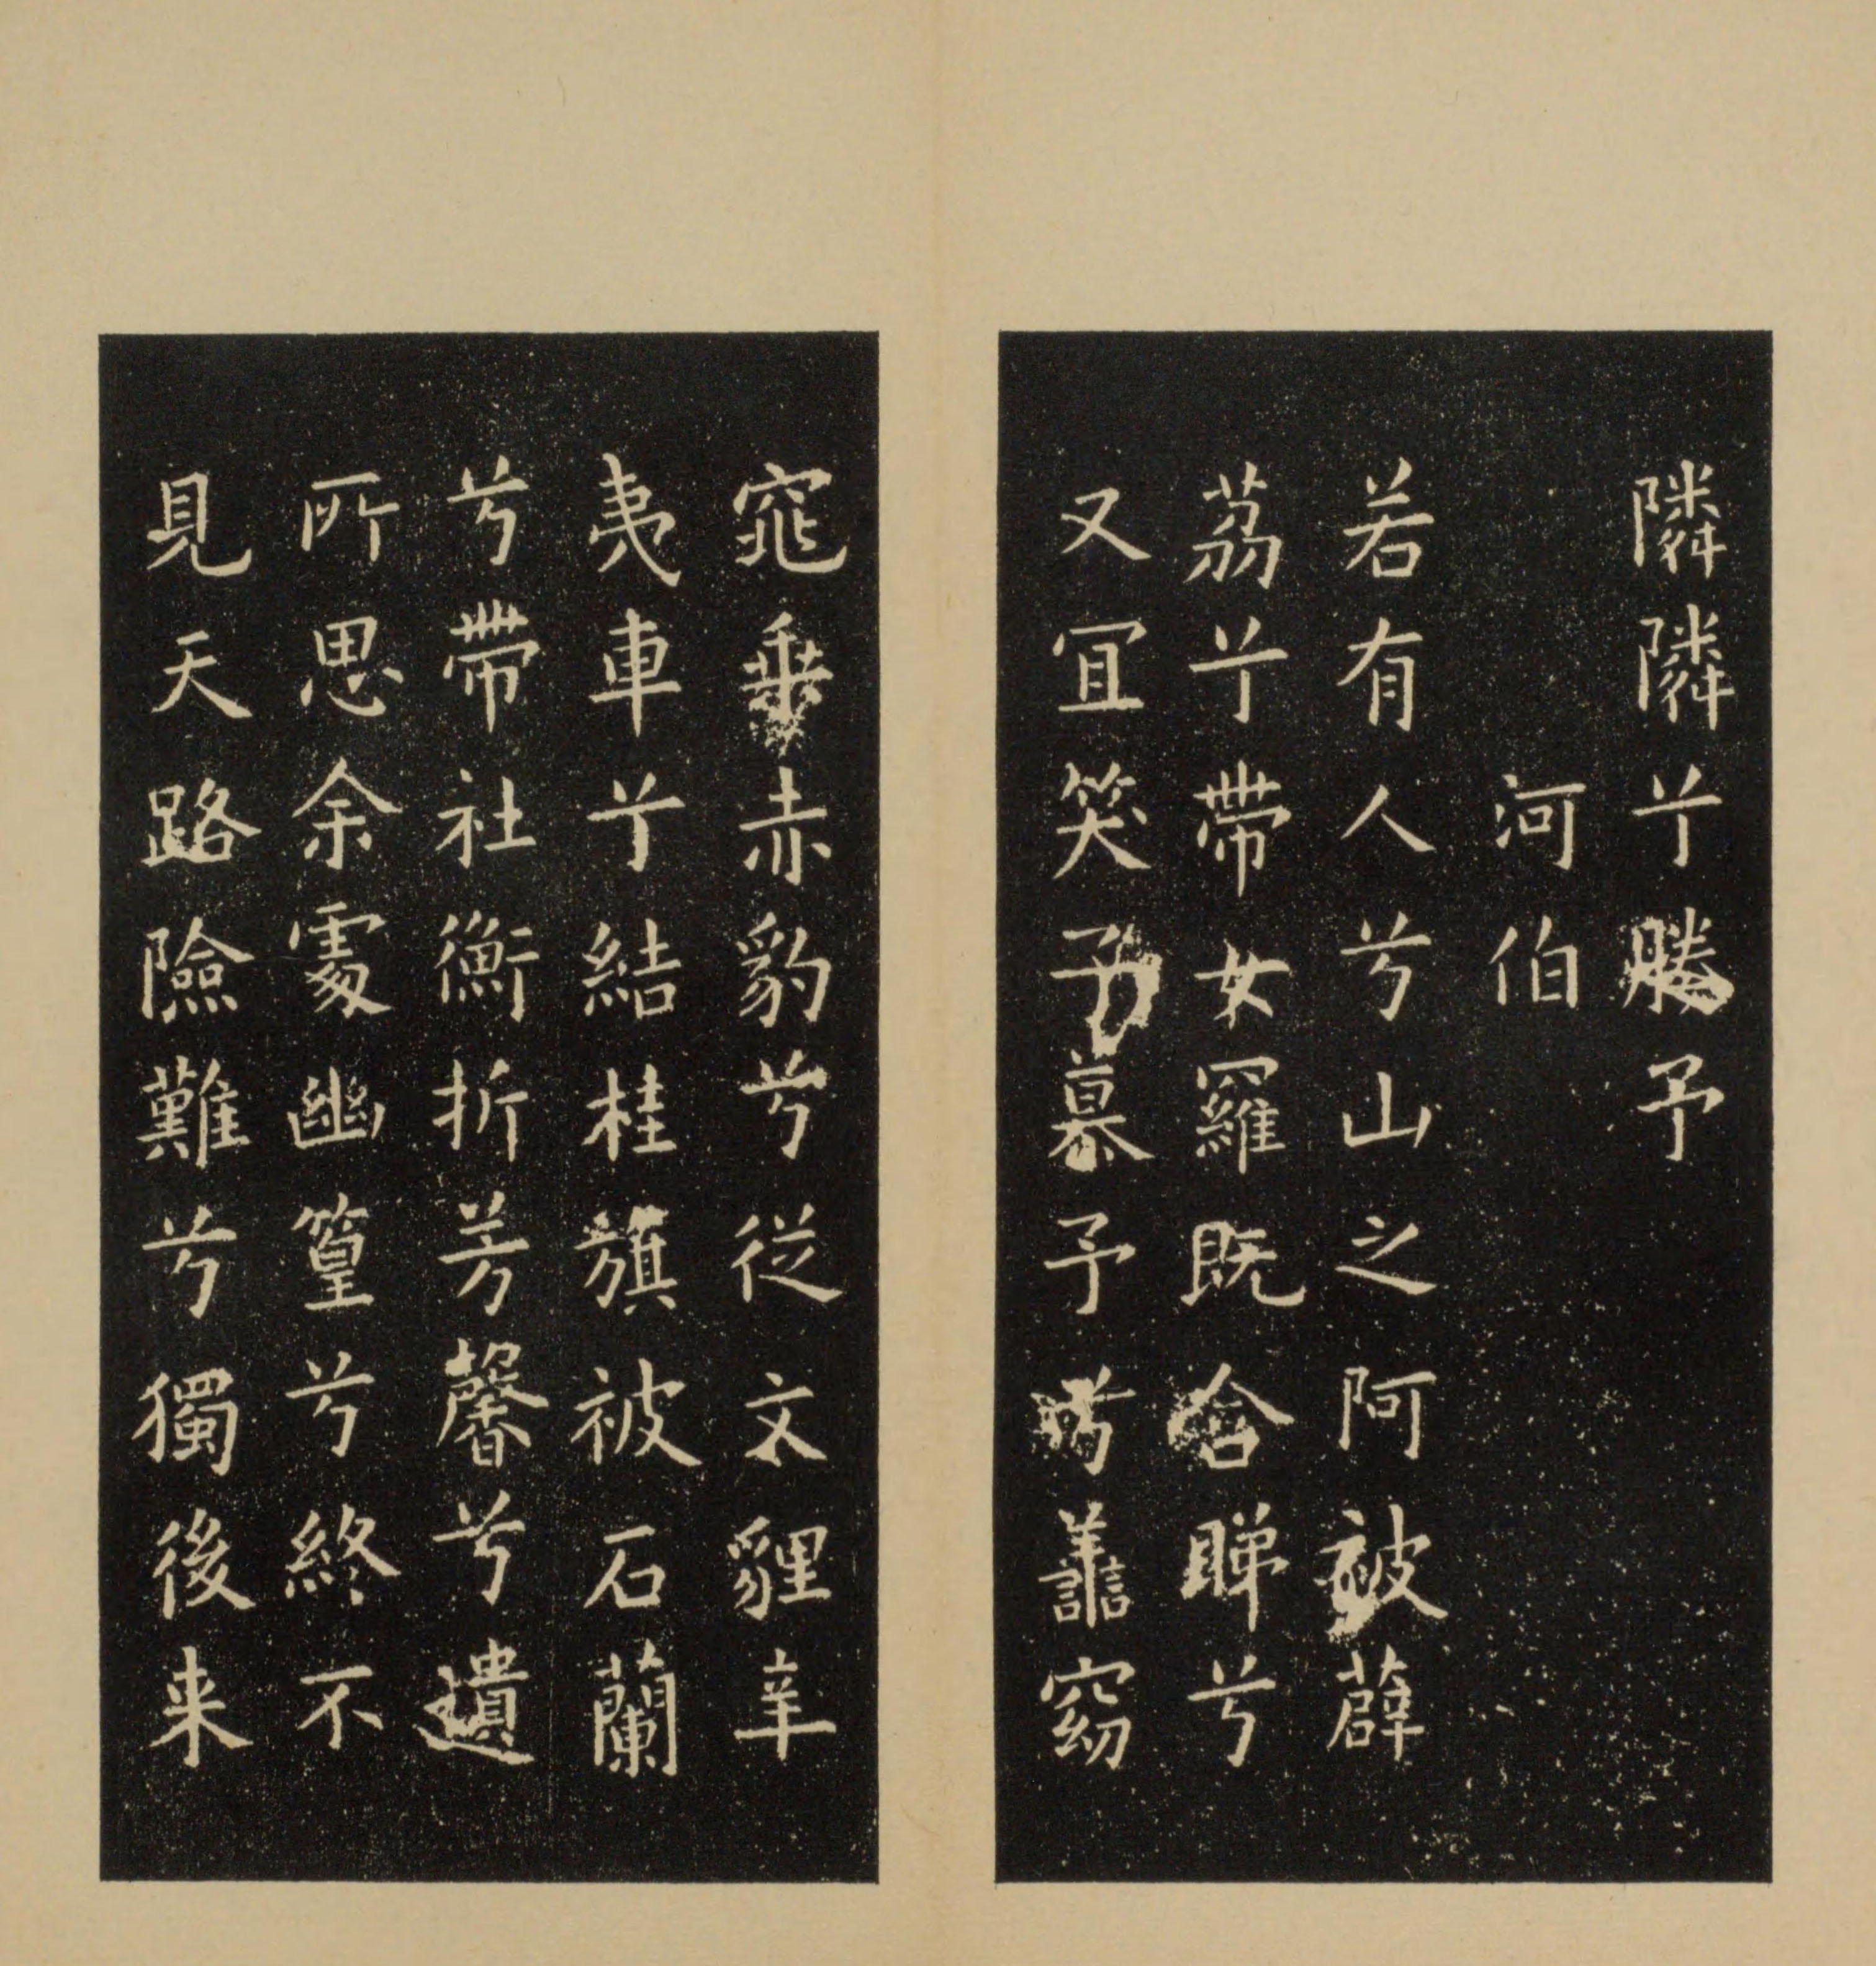 隣隣兮媵予
河伯
若有人兮山之阿被薜
荔兮帶女羅既含睇兮
又宜笑子慕予兮譱窈
窕乗赤豹兮從文貍辛
夷車兮結桂旗被石蘭
兮帶社衡折芳馨兮遺
所思余處幽篁兮終不
見天路險難兮獨後来